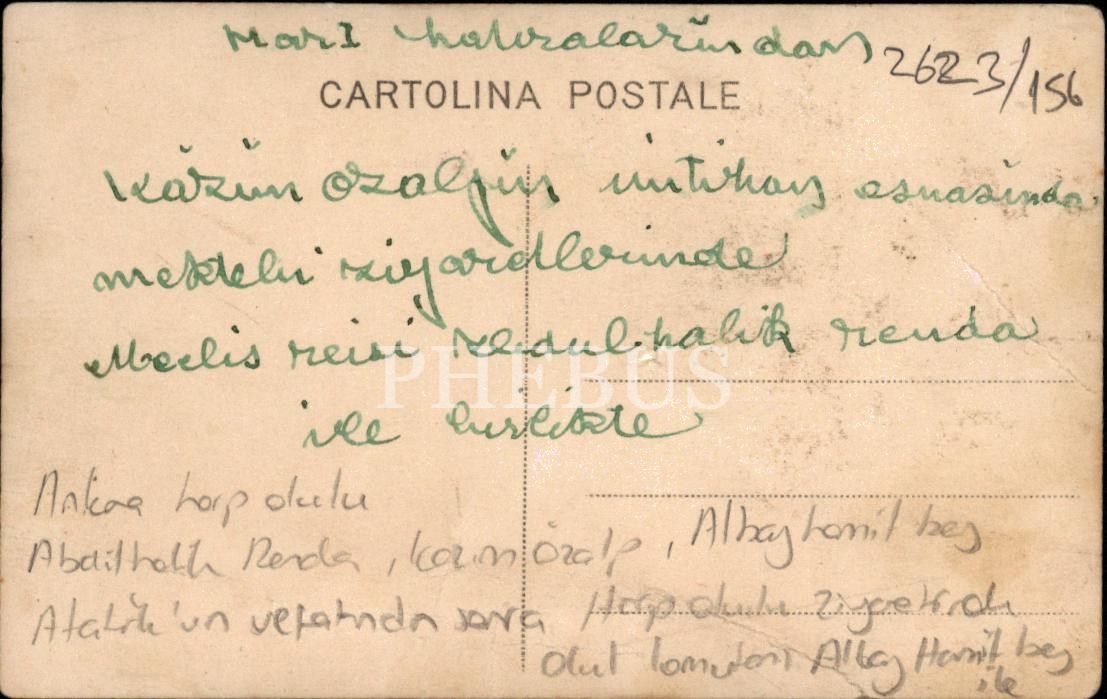 hatıralarından
2623/156
CARTOLINA POSTALE
Kâzım özalpın imtihan esnasında
mektebi ziyaretlerinde
Meclis reisi Abdulhalik renda
PHEBUS
ile birlikte
Ankara harp okulu
Abdülhalik Renda, Kazım Özalp, Albay Hamit bey
Atatürk'ün vefatından sonra Harp okulu ziyaretinde
okul komutanı Albay Hamit bey
ile